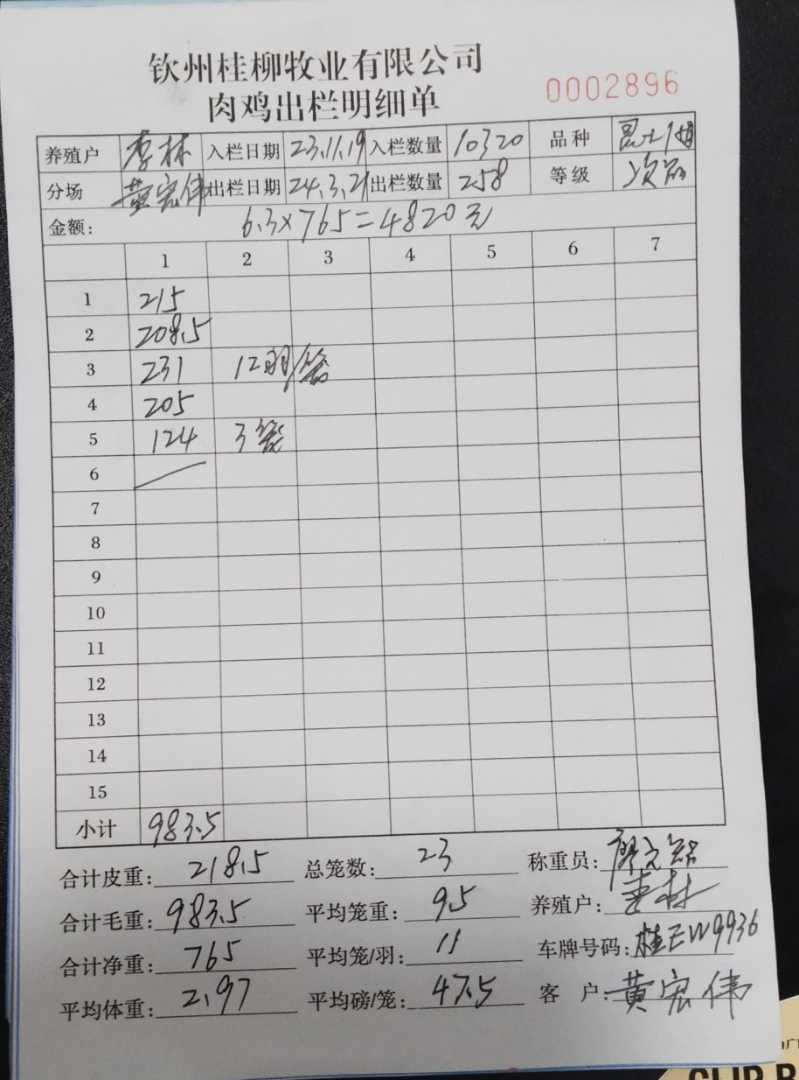 钦州桂柳牧业有限公司
肉鸡出栏明细单 0002896
养殖户 李林 入栏日期 23.11.19 入栏数量 10320 品种
分场 黄宏伟 出栏日期 24.3.21 出栏数量 258 等级 次品
金额: 6.3×765=4820元
1 2 3 4 5 6 7
1 215
2 208.5
3 231 12羽/笼
4 205
5 124 3笼
6
7
8
9
10
11
12
13
14
15
小计 983.5
合计皮重: 218.5 总笼数: 23 称重员:
合计毛重: 983.5 平均笼重: 9.5 养殖户: 李林
合计净重: 765 平均笼/羽: 11 车牌号码: 桂EW9936
平均体重: 2.97 平均磅/笼: 47.5 客 户: 黄宏伟
CLIP B